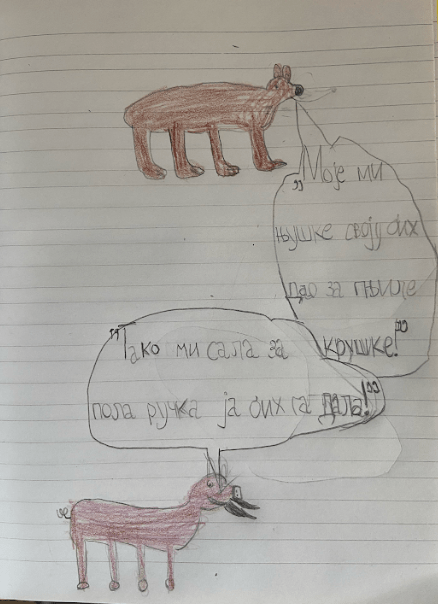 „Моје ми
њушке своју бих
дао за гњиле
крушке!"
„Тако ми сала за
пола ручка ја бих га дала!"